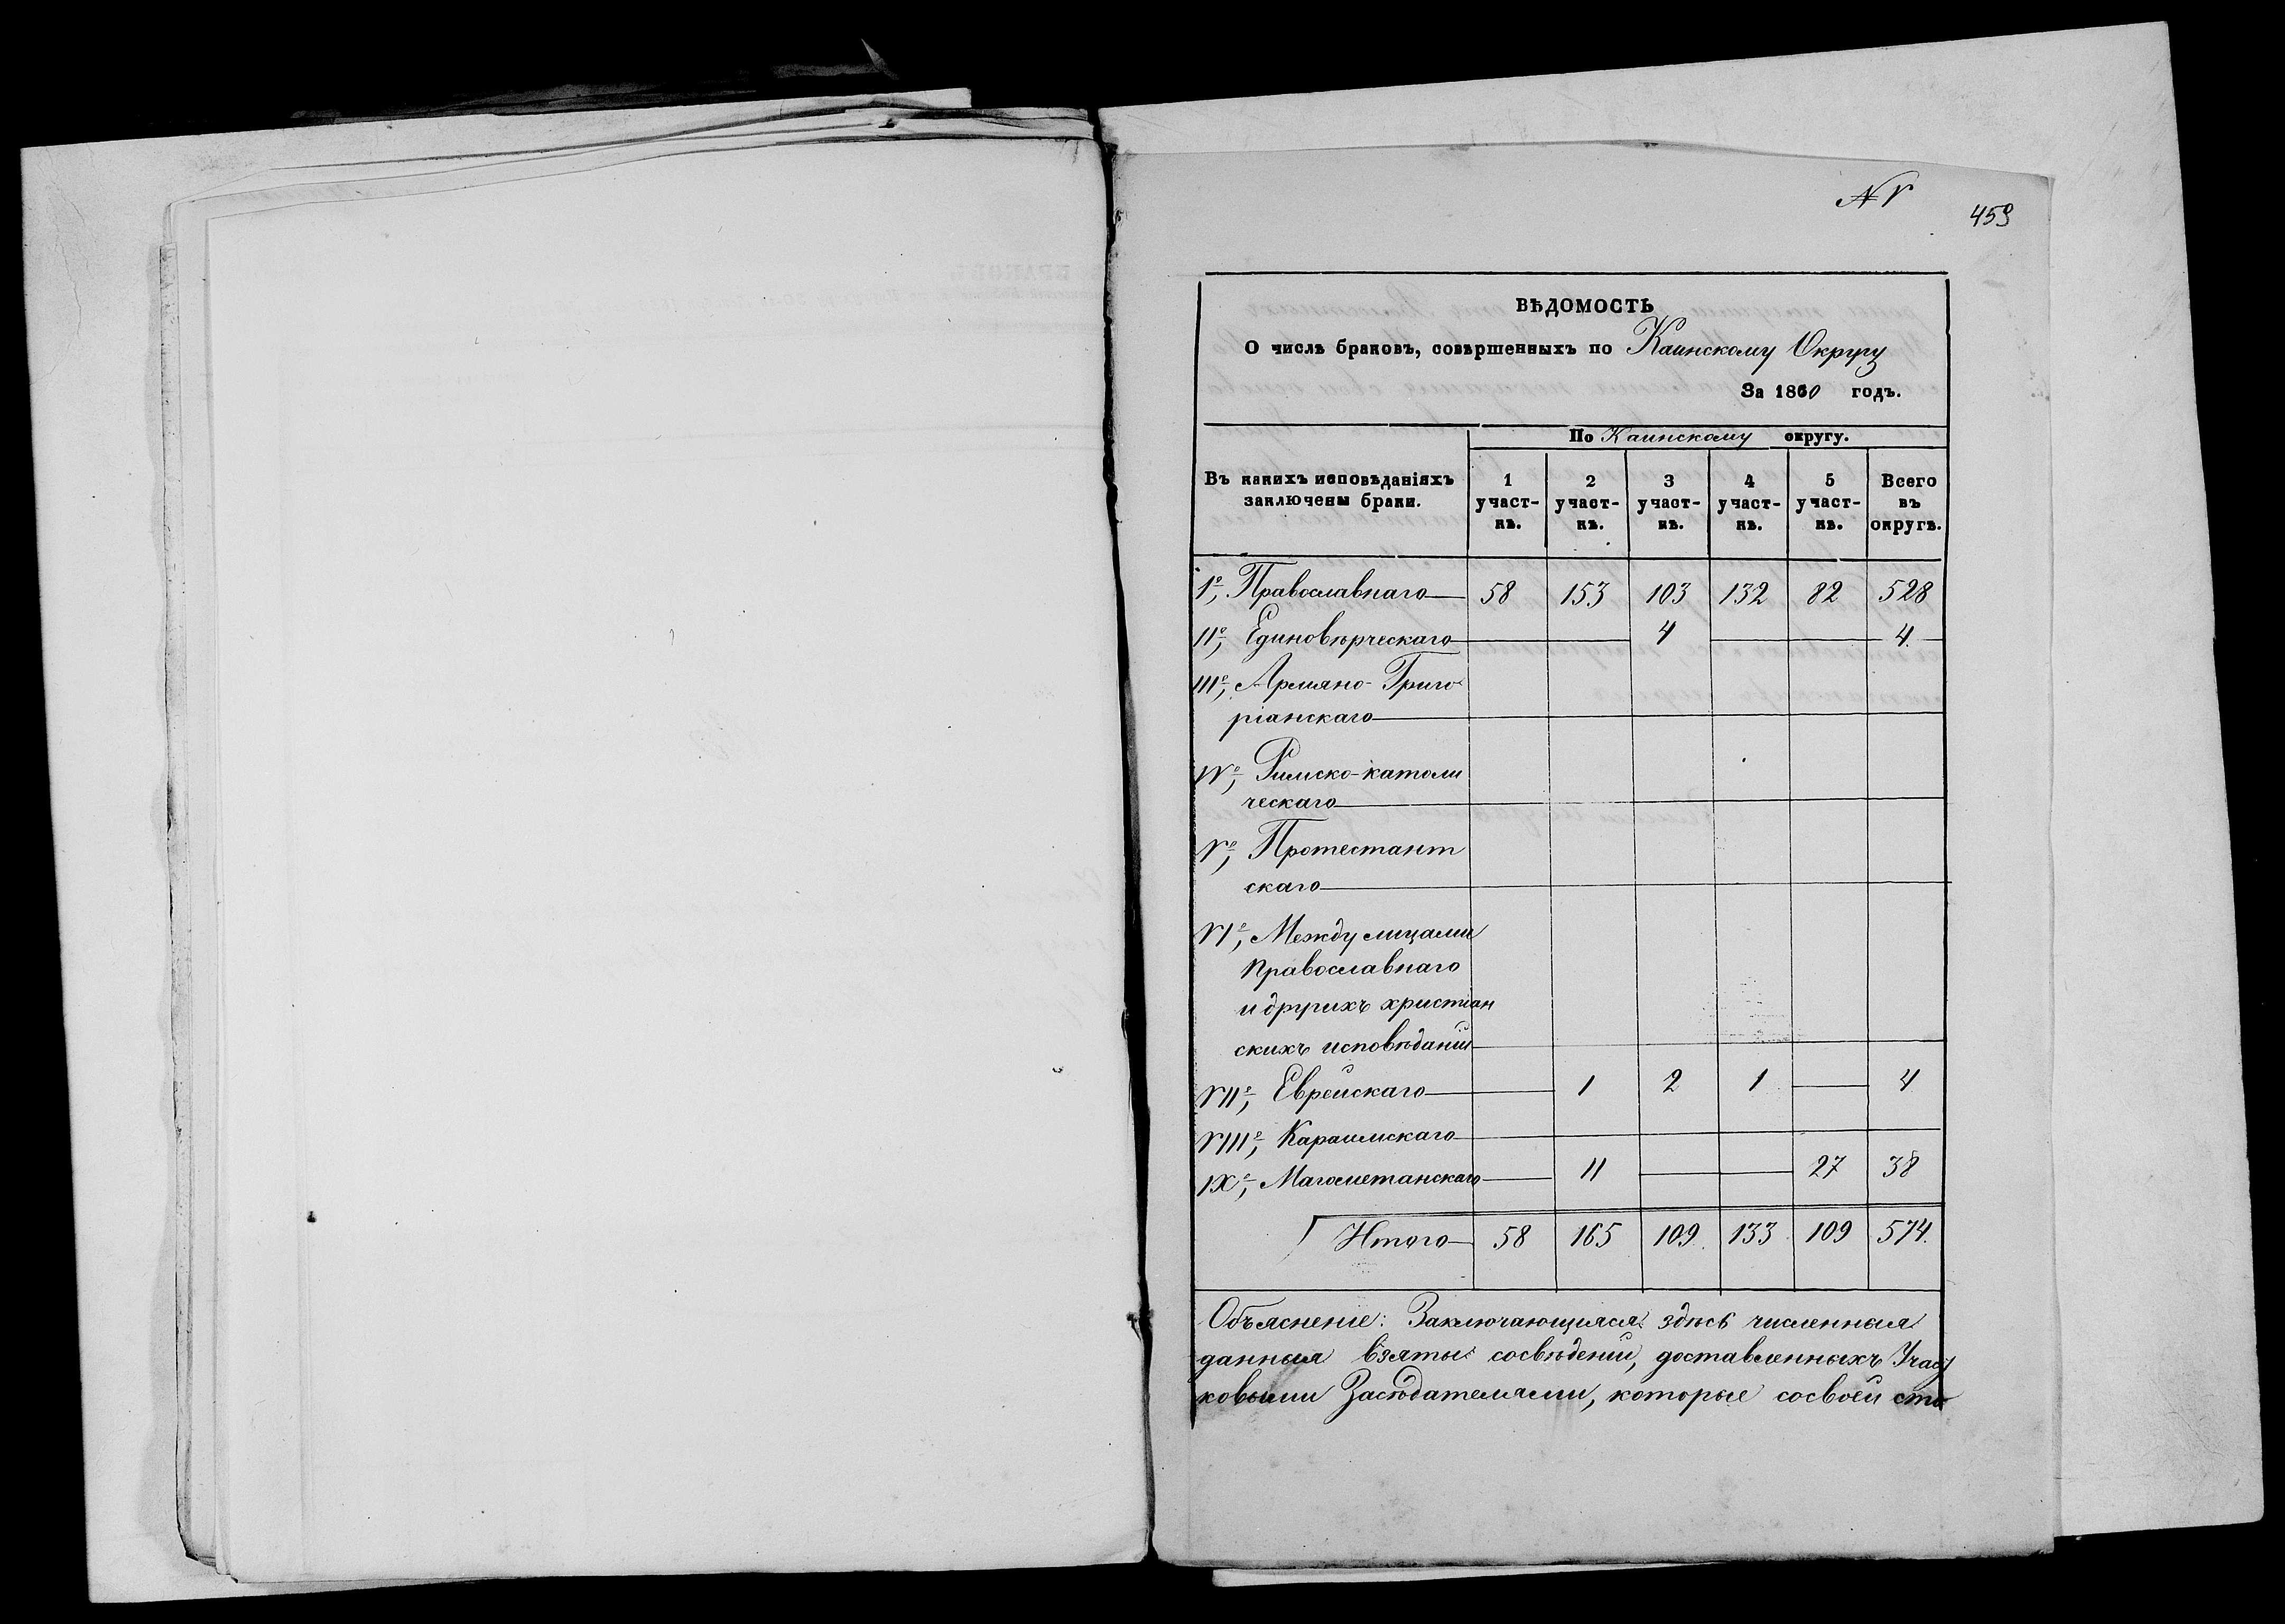 N V
459
ВѢДОМОСТЬ
О числѣ браковъ, совершенныхъ по Каинскому Округу
За 1860 годъ.
Въ какихъ исповѣданіяхъ заключены браки. По Каинскому округу.
1 участ-кѣ. 2 участ-кѣ. 3 участ-кѣ. 4 участ-кѣ. 5 участ-кѣ. Всего въ округѣ.
Iº, Православнаго 58 153 103 132 82 528
IIº, Единовѣрческаго — — 4 — — 4
IIIº, Армяно-Григо
ріанскаго — — — — — —
IVº, Римско-католи
ческаго — — — — — —
Vº, Протестант
скаго — — — — — —
VIº, Между лицами
православнаго
и другихъ христіан
скихъ исповѣданій — — — — — —
VIIº, Еврейскаго — 1 2 1 — 4
VIIIº, Караимскаго — — — — — —
IXº, Магометанскаго — 11 — — 27 38
Итого 58 165 109 133 109 574
Объясненіе: Заключающіяся здѣсь численныя
данныя взяты сосвѣденій, доставленныхъ Участ
ковыми Засѣдателями, которые сосвоей сто